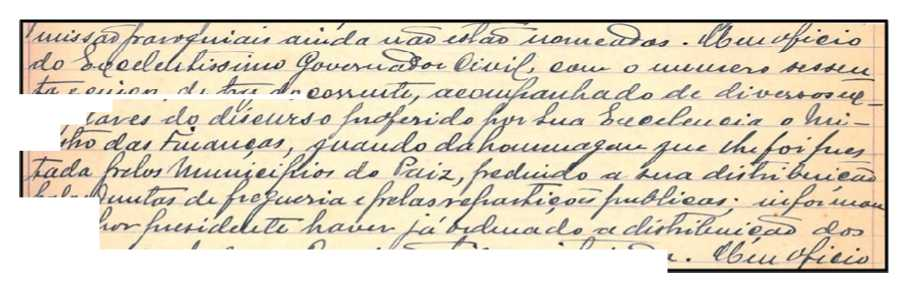 missão paroquiais ainda não estão nomeadas. Um oficio
do Excelentissimo Governador Civil, com o numero sessen
ta e cinco, de tres do corrente, acompanhado de diversos ex-
lares do discurso proferido por Sua Excelencia o Mi-
stro das Finanças, quando da homenagem que lhe foi pres
tada pelos Municipios do Paiz, pedindo a sua distribuição
pelas Juntas de freguesia e pelas repartições publicas; informou
hor presidente haver já ordenado a distribuição dos
Um oficio